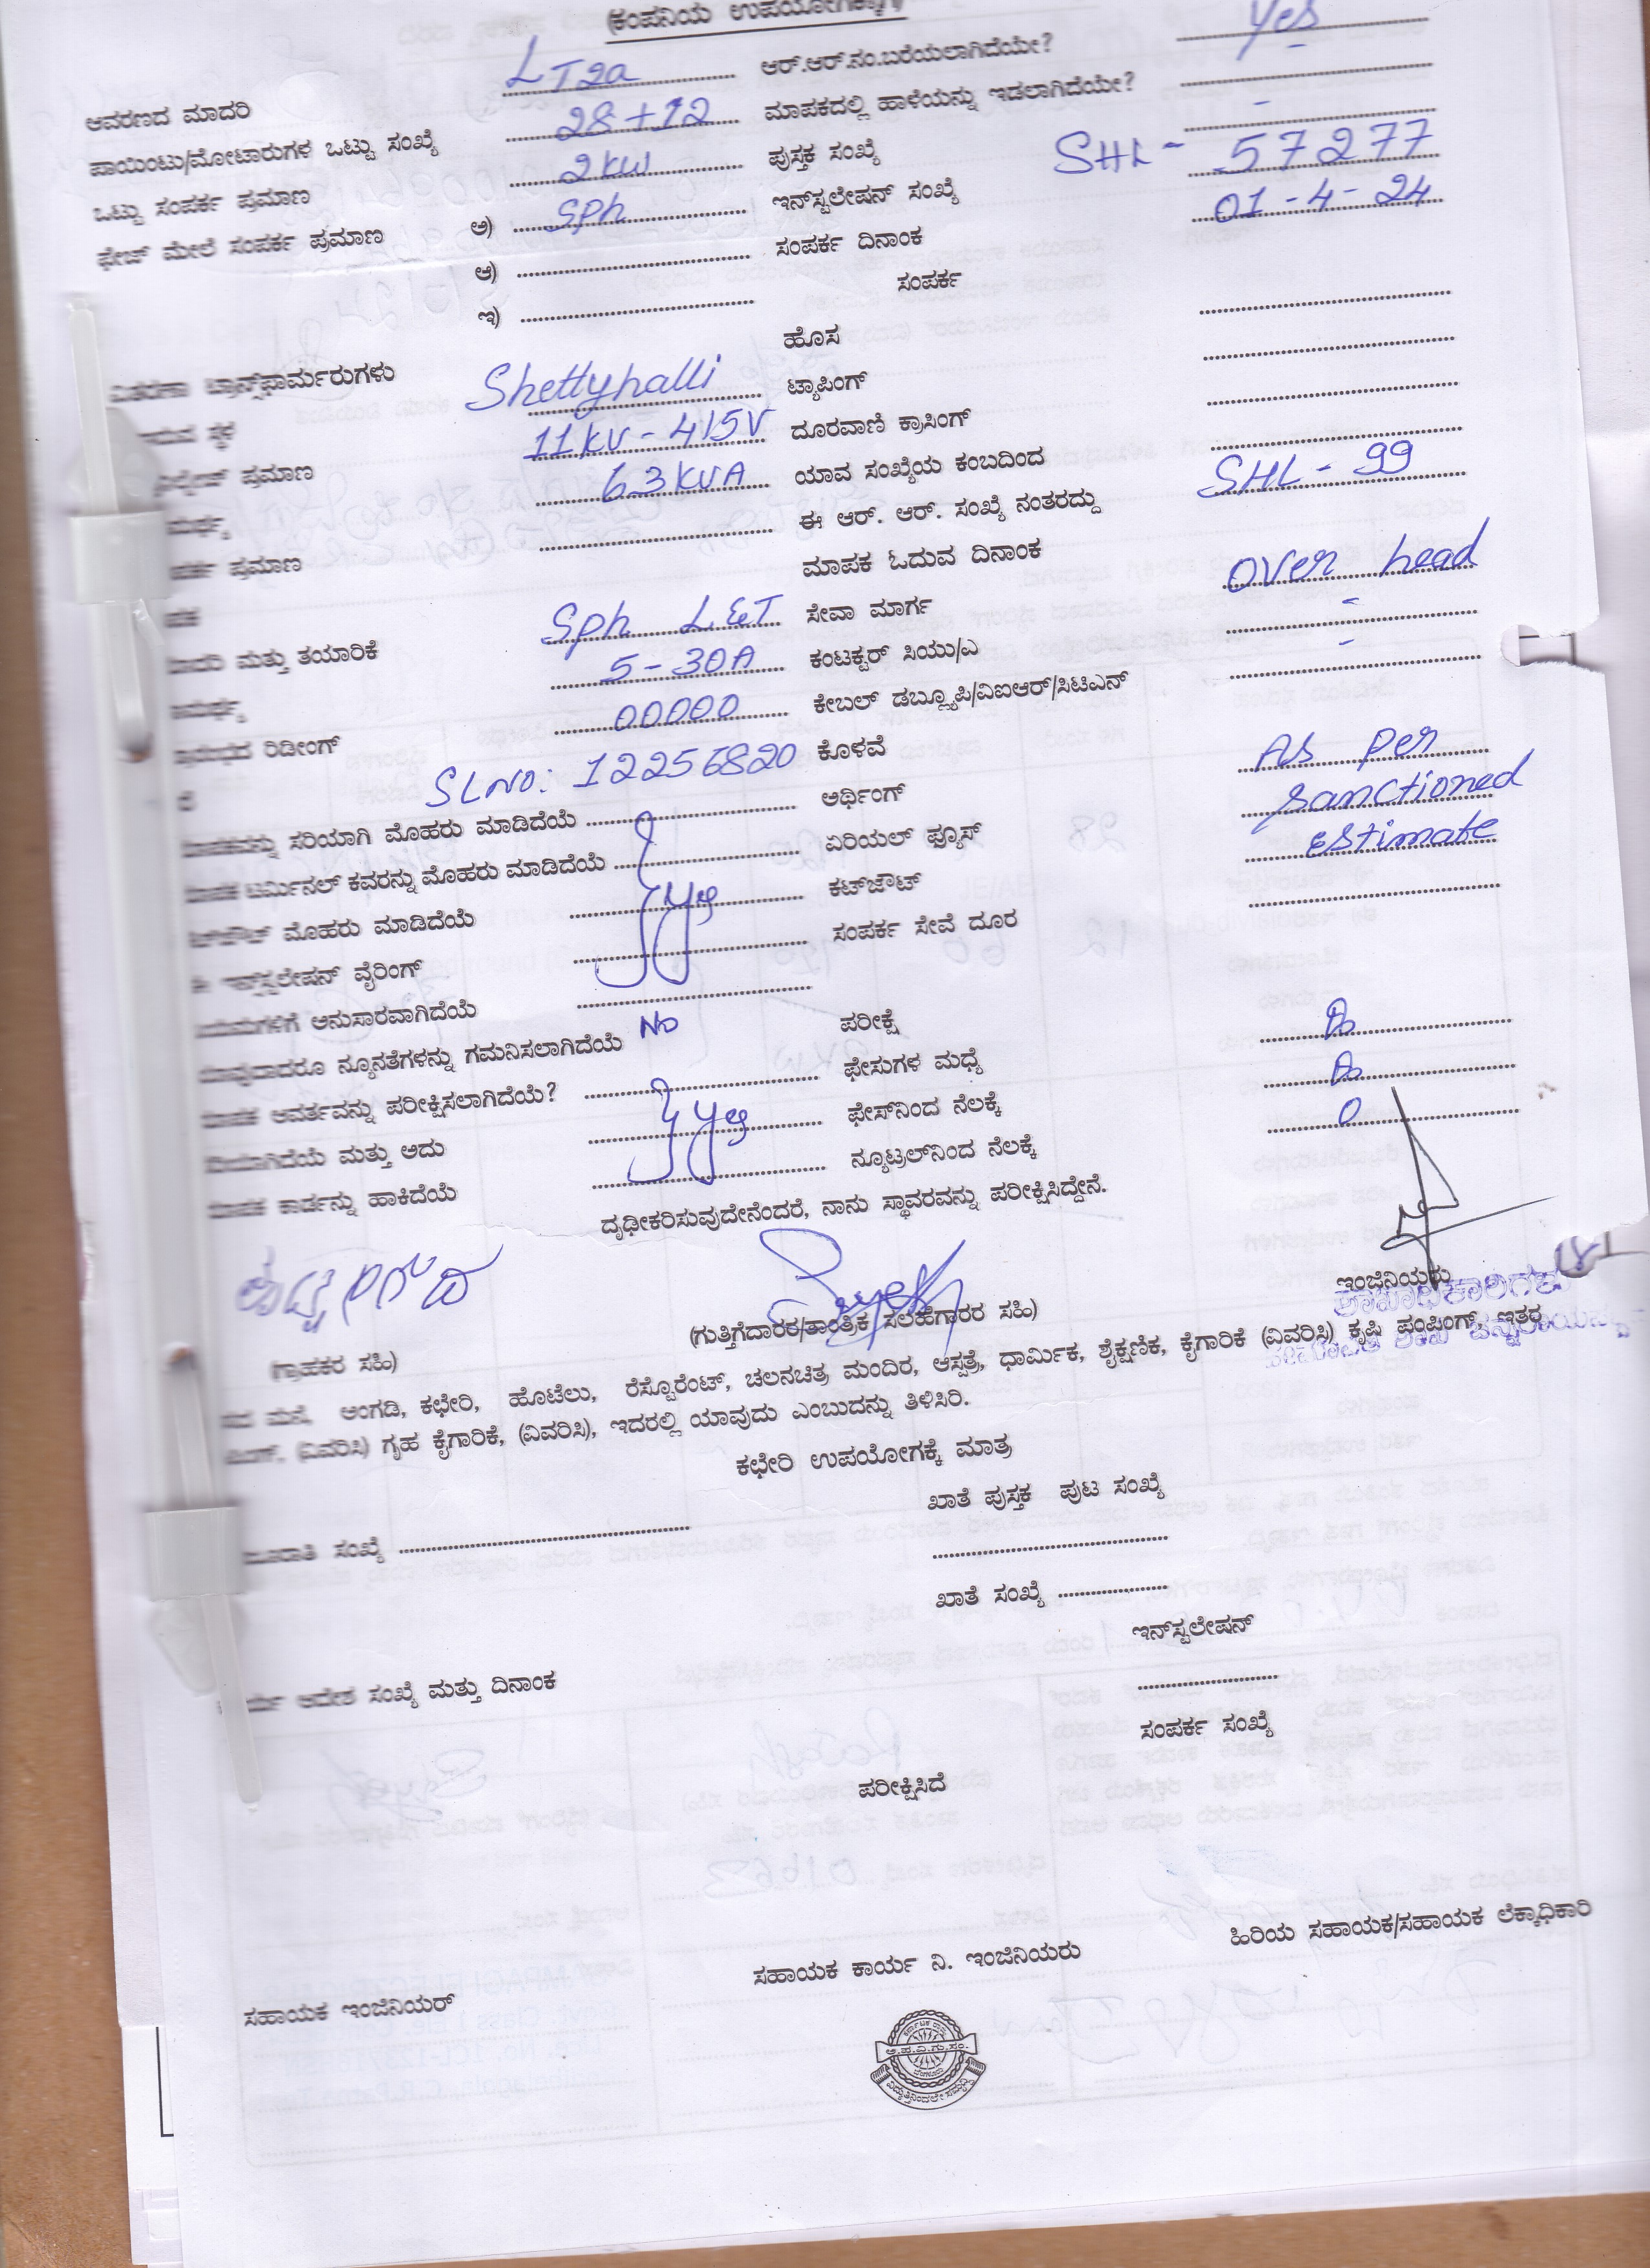 (ಕಂಪನಿಯ ಉಪಯೋಗಕ್ಕಾಗಿ)
ಆವರಣದ ಮಾದರಿ LT2a ಆರ್.ಆರ್.ನಂ.ಬರೆಯಲಾಗಿದೆಯೇ? Yes
ಪಾಯಿಂಟು/ಮೋಟಾರುಗಳ ಒಟ್ಟು ಸಂಖ್ಯೆ 28+12 ಮಾಪಕದಲ್ಲಿ ಹಾಳೆಯನ್ನು ಇಡಲಾಗಿದೆಯೇ? -
ಒಟ್ಟು ಸಂಪರ್ಕ ಪ್ರಮಾಣ 2KW ಪುಸ್ತಕ ಸಂಖ್ಯೆ -
ಫೇಜ್ ಮೇಲೆ ಸಂಪರ್ಕ ಪ್ರಮಾಣ ಅ) Sph ಇನ್‌ಸ್ಟಲೇಷನ್ ಸಂಖ್ಯೆ SHL - 57277
ಆ) ಸಂಪರ್ಕ ದಿನಾಂಕ 01-4-24
ಇ) ಸಂಪರ್ಕ
ವಿತರಣಾ ಟ್ರಾನ್ಸ್‌ಫಾರ್ಮರುಗಳು ಹೊಸ
ಸ್ಥಳ Shettyhalli ಟ್ಯಾಪಿಂಗ್
ಪ್ರಮಾಣ 11KV - 415V ದೂರವಾಣಿ ಕ್ರಾಸಿಂಗ್
63KVA ಯಾವ ಸಂಖ್ಯೆಯ ಕಂಬದಿಂದ
ಪ್ರಮಾಣ ಈ ಆರ್. ಆರ್. ಸಂಖ್ಯೆ ನಂತರದ್ದು SHL - 99
ಮಾಪಕ ಓದುವ ದಿನಾಂಕ
ಮಾದರಿ ಮತ್ತು ತಯಾರಿಕೆ Sph L&T ಸೇವಾ ಮಾರ್ಗ Over head
5-30A ಕಂಟಕ್ಟರ್ ಸಿಯು/ಎ -
ರಿಡೀಂಗ್ 00000 ಕೇಬಲ್ ಡಬ್ಲ್ಯೂಪಿ/ವಿಐಆರ್/ಸಿಟಿಎನ್ -
SLNO: 12256820 ಕೊಳವೆ
ಮಾಪಕವನ್ನು ಸರಿಯಾಗಿ ಮೊಹರು ಮಾಡಿದೆಯೆ ಅರ್ಥಿಂಗ್ As per
ಮಾಪಕ ಟರ್ಮಿನಲ್ ಕವರನ್ನು ಮೊಹರು ಮಾಡಿದೆಯೆ ಏರಿಯಲ್ ಫ್ಯೂಸ್ sanctioned
ಮೊಹರು ಮಾಡಿದೆಯೆ ಕಟ್‌ಔಟ್ estimate
ಈ ಇನ್‌ಸ್ಟಲೇಷನ್ ವೈರಿಂಗ್ ಸಂಪರ್ಕ ಸೇವೆ ದೂರ
ನಿಯಮಗಳಿಗೆ ಅನುಸಾರವಾಗಿದೆಯೆ
ಯಾವುದಾದರೂ ನ್ಯೂನತೆಗಳನ್ನು ಗಮನಿಸಲಾಗಿದೆಯೆ No ಪರೀಕ್ಷೆ
ಮಾಪಕ ಆವರ್ತವನ್ನು ಪರೀಕ್ಷಿಸಲಾಗಿದೆಯೆ? ಫೇಸುಗಳ ಮಧ್ಯೆ
ಸರಿಯಾಗಿದೆಯೆ ಮತ್ತು ಅದು ಫೇಸ್‌ನಿಂದ ನೆಲಕ್ಕೆ
ಮಾಪಕ ಕಾರ್ಡನ್ನು ಹಾಕಿದೆಯೆ ನ್ಯೂಟ್ರಲ್‌ನಿಂದ ನೆಲಕ್ಕೆ 0
ದೃಢೀಕರಿಸುವುದೇನೆಂದರೆ, ನಾನು ಸ್ಥಾವರವನ್ನು ಪರೀಕ್ಷಿಸಿದ್ದೇನೆ.
ಇಂಜಿನಿಯರು
(ಗ್ರಾಹಕರ ಸಹಿ) (ಗುತ್ತಿಗೆದಾರರ/ತಾಂತ್ರಿಕ ಸಲಹೆಗಾರರ ಸಹಿ)
ಮನೆ, ಅಂಗಡಿ, ಕಛೇರಿ, ಹೊಟೆಲು, ರೆಸ್ಟೊರೆಂಟ್, ಚಲನಚಿತ್ರ ಮಂದಿರ, ಆಸ್ಪತ್ರೆ, ಧಾರ್ಮಿಕ, ಶೈಕ್ಷಣಿಕ, ಕೈಗಾರಿಕೆ (ವಿವರಿಸಿ) ಕೃಷಿ ಪಂಪಿಂಗ್, ಇತರ
(ವಿವರಿಸಿ) ಗೃಹ ಕೈಗಾರಿಕೆ, (ವಿವರಿಸಿ), ಇದರಲ್ಲಿ ಯಾವುದು ಎಂಬುದನ್ನು ತಿಳಿಸಿರಿ.
ಕಛೇರಿ ಉಪಯೋಗಕ್ಕೆ ಮಾತ್ರ
ಖಾತೆ ಪುಸ್ತಕ ಪುಟ ಸಂಖ್ಯೆ
ಸಂಖ್ಯೆ
ಖಾತೆ ಸಂಖ್ಯೆ
ಇನ್‌ಸ್ಟಲೇಷನ್
ಆದೇಶ ಸಂಖ್ಯೆ ಮತ್ತು ದಿನಾಂಕ
ಸಂಪರ್ಕ ಸಂಖ್ಯೆ
ಪರೀಕ್ಷಿಸಿದೆ
ಸಹಾಯಕ ಇಂಜಿನಿಯರ್ ಸಹಾಯಕ ಕಾರ್ಯ ನಿ. ಇಂಜಿನಿಯರು ಹಿರಿಯ ಸಹಾಯಕ/ಸಹಾಯಕ ಲೆಕ್ಕಾಧಿಕಾರಿ